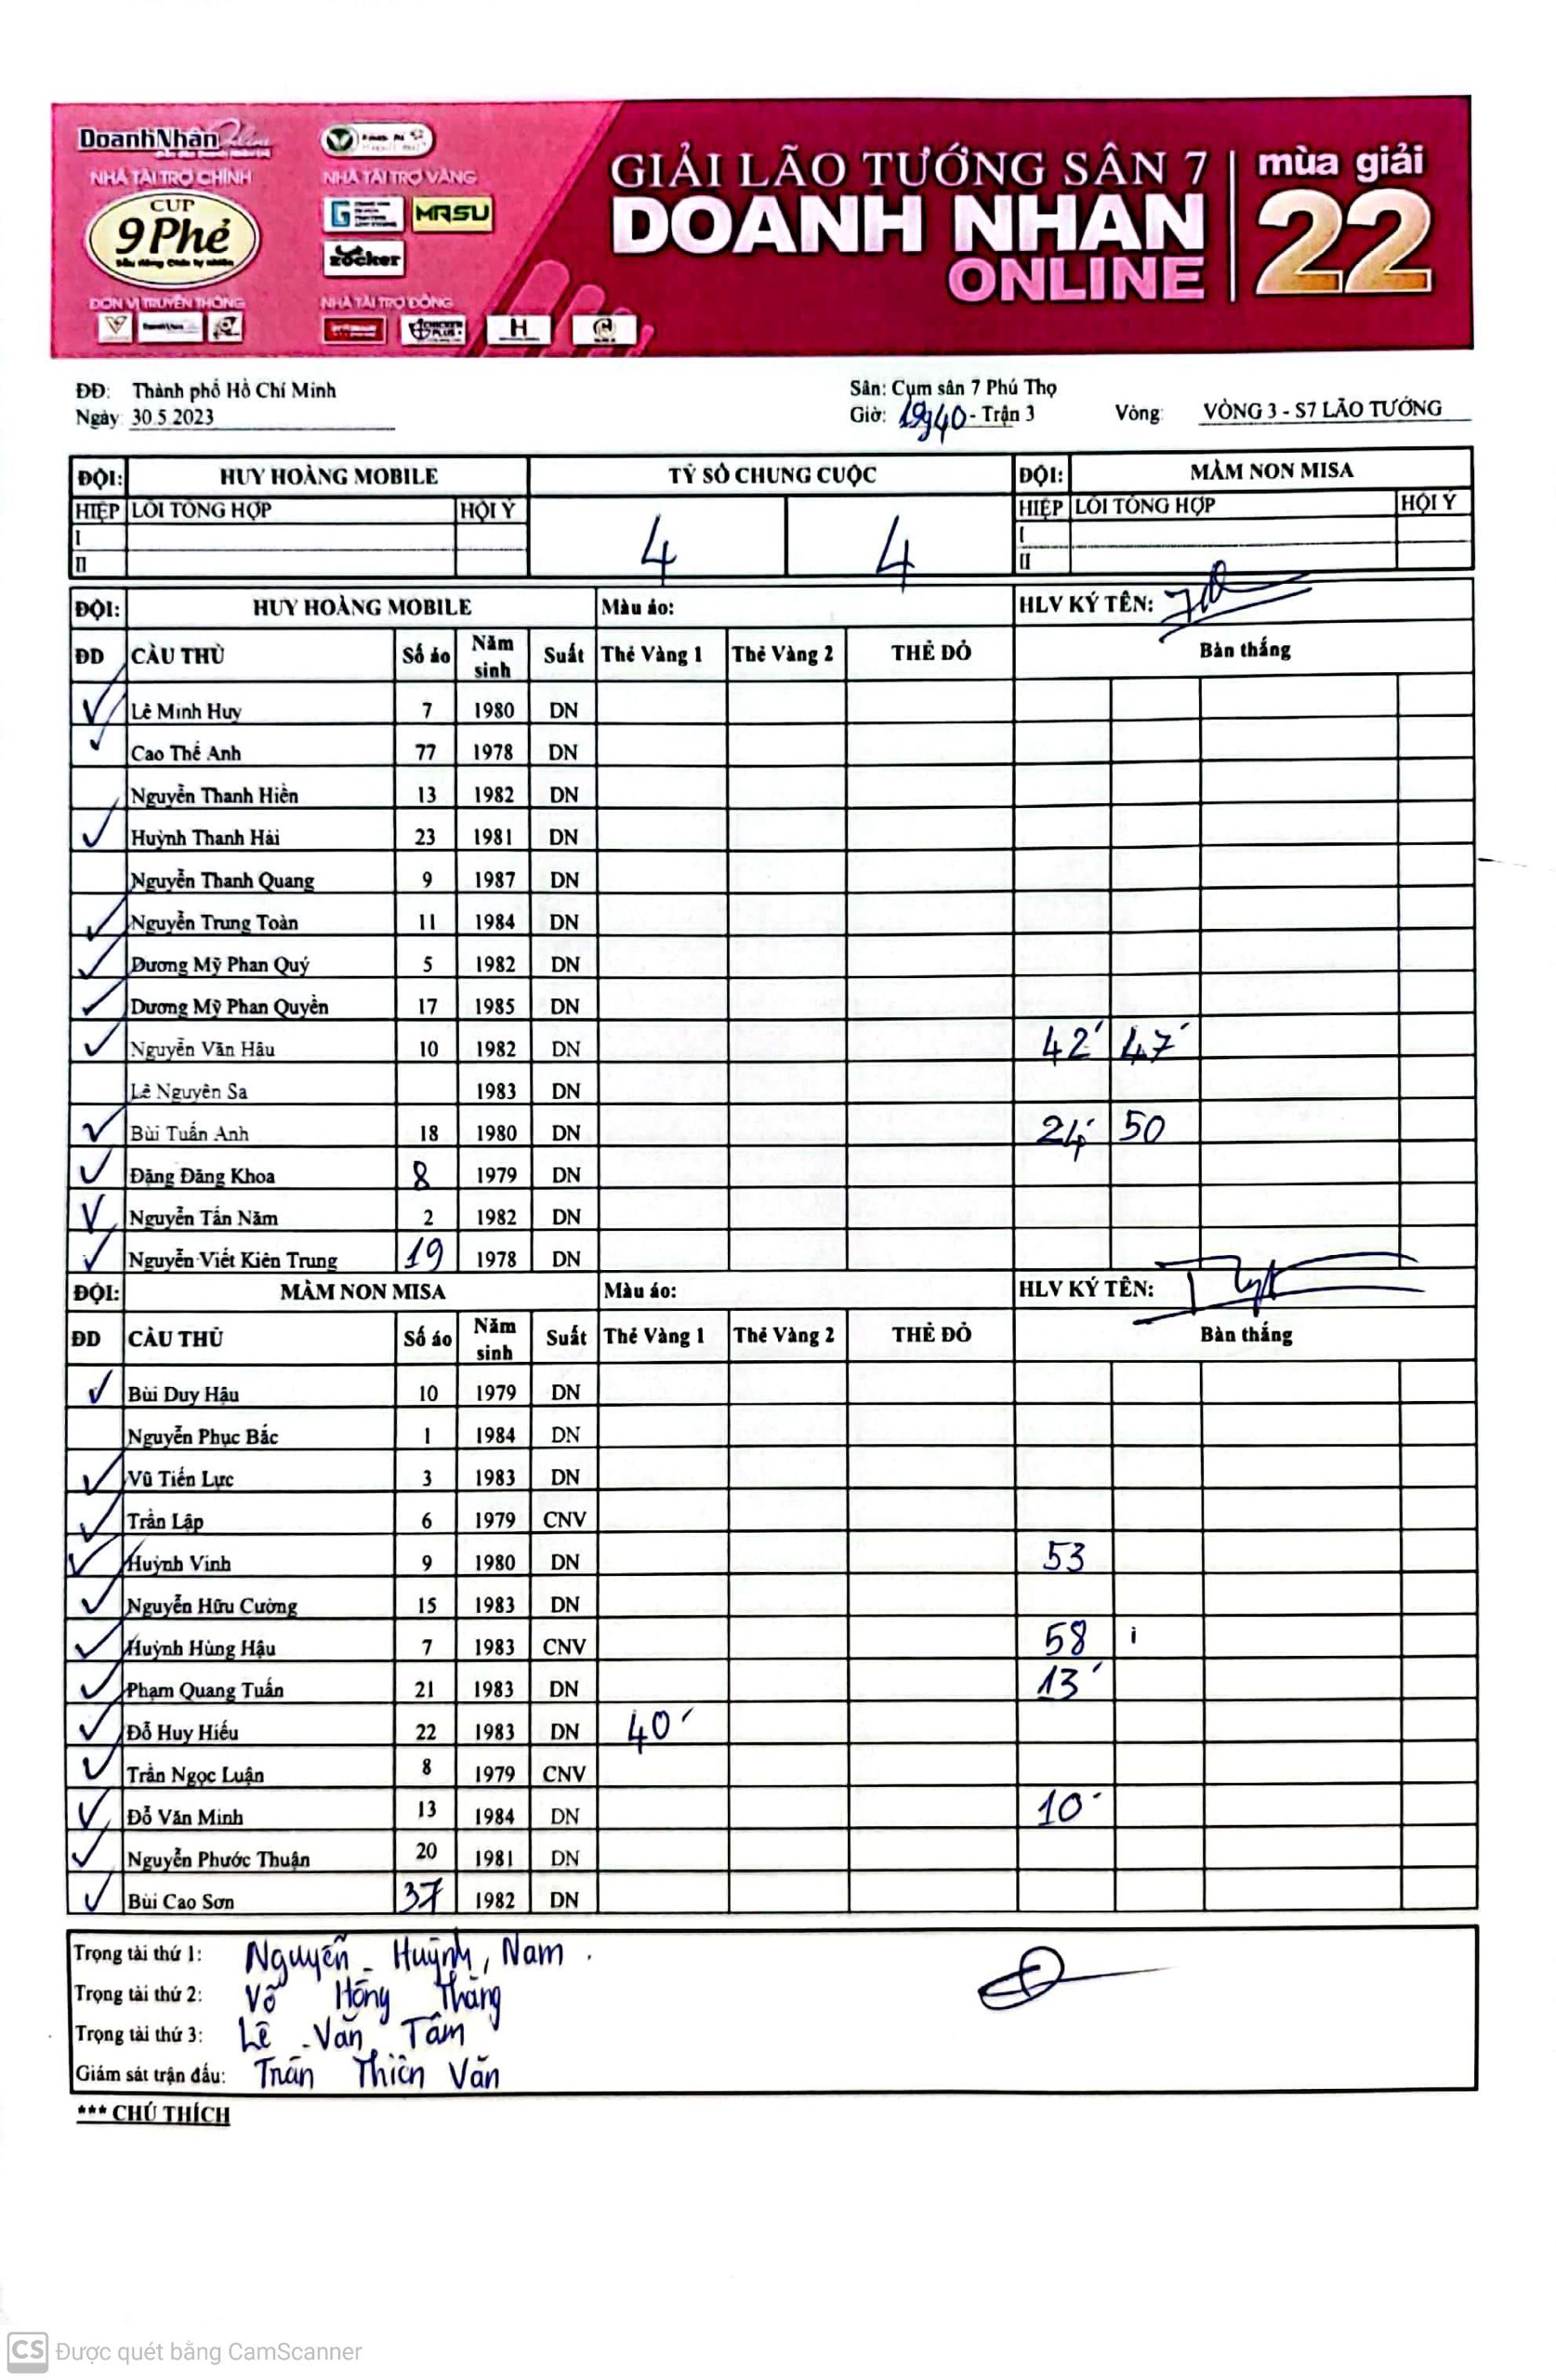 DoanhNhân Online
NHÀ TÀI TRỢ CHÍNH
NHÀ TÀI TRỢ VÀNG
CUP
9 Phẻ
MRSU
zocker
ĐƠN VỊ TRUYỀN THÔNG
NHÀ TÀI TRỢ ĐỒNG
GIẢI LÃO TƯỚNG SÂN 7
DOANH NHÂN
ONLINE
mùa giải
22
ĐĐ: Thành phố Hồ Chí Minh
Sân: Cụm sân 7 Phú Thọ
Ngày: 30.5.2023
Giờ: 19g40 - Trận 3
Vòng: VÒNG 3 - S7 LÃO TƯỚNG
ĐỘI: HUY HOÀNG MOBILE TỶ SỐ CHUNG CUỘC ĐỘI: MẦM NON MISA
HIỆP LỖI TỔNG HỢP HỘI Ý HIỆP LỖI TỔNG HỢP HỘI Ý
I I
4 4
II II
ĐỘI: HUY HOÀNG MOBILE Màu áo: HLV KÝ TÊN:
ĐD CẦU THỦ Số áo Năm sinh Suất Thẻ Vàng 1 Thẻ Vàng 2 THẺ ĐỎ Bàn thắng
Lê Minh Huy 7 1980 DN
Cao Thế Anh 77 1978 DN
Nguyễn Thanh Hiền 13 1982 DN
Huỳnh Thanh Hải 23 1981 DN
Nguyễn Thanh Quang 9 1987 DN
Nguyễn Trung Toàn 11 1984 DN
Dương Mỹ Phan Quý 5 1982 DN
Dương Mỹ Phan Quyền 17 1985 DN
Nguyễn Văn Hậu 10 1982 DN 42' 47'
Lê Nguyên Sa 1983 DN
Bùi Tuấn Anh 18 1980 DN 24' 50
Đặng Đăng Khoa 8 1979 DN
Nguyễn Tấn Năm 2 1982 DN
Nguyễn Viết Kiên Trung 19 1978 DN
ĐỘI: MẦM NON MISA Màu áo: HLV KÝ TÊN:
ĐD CẦU THỦ Số áo Năm sinh Suất Thẻ Vàng 1 Thẻ Vàng 2 THẺ ĐỎ Bàn thắng
Bùi Duy Hậu 10 1979 DN
Nguyễn Phục Bắc 1 1984 DN
Vũ Tiến Lực 3 1983 DN
Trần Lập 6 1979 CNV
Huỳnh Vinh 9 1980 DN 53
Nguyễn Hữu Cường 15 1983 DN
Huỳnh Hùng Hậu 7 1983 CNV 58
Phạm Quang Tuấn 21 1983 DN 13'
Đỗ Huy Hiếu 22 1983 DN 40'
Trần Ngọc Luận 8 1979 CNV
Đỗ Văn Minh 13 1984 DN 10'
Nguyễn Phước Thuận 20 1981 DN
Bùi Cao Sơn 37 1982 DN
Trọng tài thứ 1: Nguyễn Huỳnh Nam
Trọng tài thứ 2: Võ Hồng Thăng
Trọng tài thứ 3: Lê Văn Tâm
Giám sát trận đấu: Trần Thiên Văn
*** CHÚ THÍCH
CS Được quét bằng CamScanner